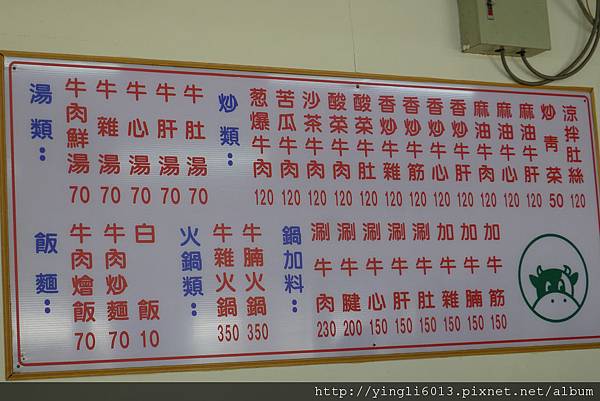 湯類：
牛肉鮮湯 70
牛雜湯 70
牛心湯 70
牛肝湯 70
牛肚湯 70
炒類：
葱爆牛肉 120
苦瓜牛肉 120
沙茶牛肉 120
酸菜牛肉 120
酸菜牛肚 120
香炒牛雜 120
香炒牛筋 120
香炒牛肝 120
麻油牛肉 120
麻油牛心 120
麻油牛肝 120
炒青菜 50
涼拌肚絲 120
飯麵：
牛肉燴飯 70
牛肉炒麵 70
白飯 10
火鍋類：
牛雜火鍋 350
牛腩火鍋 350
鍋加料：
涮牛肉 230
涮牛腱 200
涮牛心 150
涮牛肝 150
涮牛肚 150
加牛雜 150
加牛腩 150
加牛筋 150
http://yingli6013.pixnet.net/album